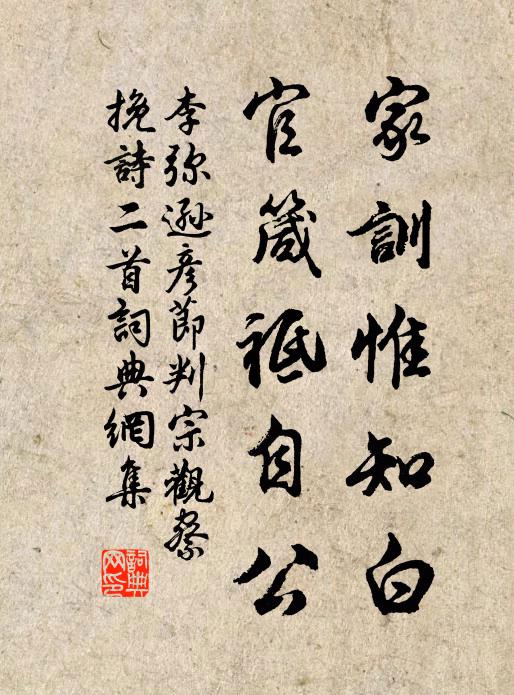 家訓惟知白
官箴祗自公
李弥遜彦節判宗觀察
挽詩二首詞典網集
詞典网印